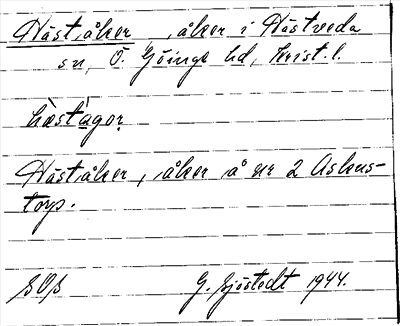 Häståker, åker i Hästveda
sn, Ö. Göinge hd, Krist. l.
hæ̀stágor
Häståker, åker å nr 2 Askus-
torp.
G. Sjöstedt 1944.